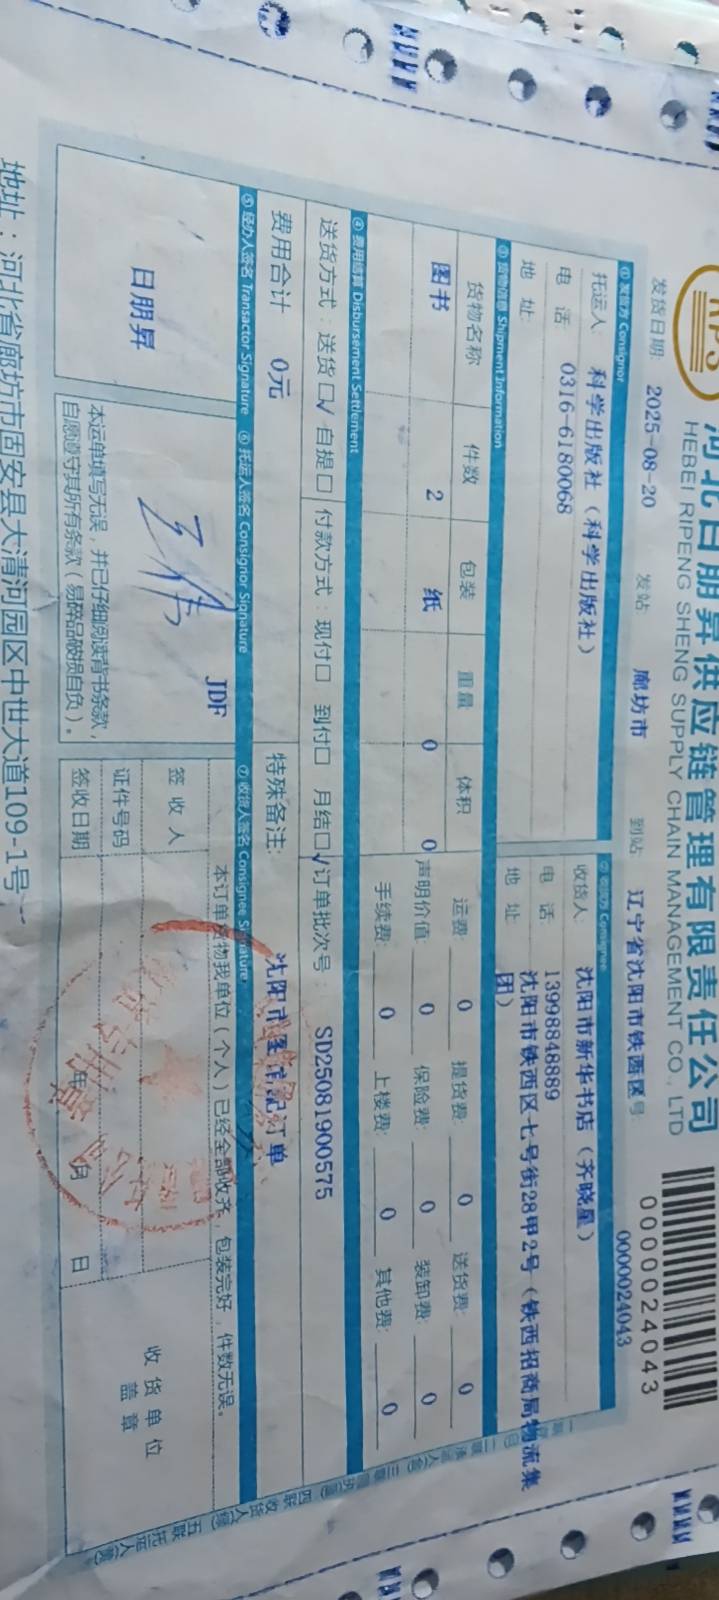 RPS
河北日朋昇供应链管理有限责任公司
HEBEI RIPENG SHENG SUPPLY CHAIN MANAGEMENT CO., LTD
0000024043
发货日期: 2025-08-20 发站: 廊坊市 到站: 辽宁省沈阳市铁西区 号 0000024043
① 发货方 Consignor
托运人: 科学出版社（科学出版社）
电 话: 0316-6180068
地 址:
② 收货方 Consignee
收货人: 沈阳市新华书店（齐晓星）
电 话: 13998848889
地 址: 沈阳市铁西区七号街28甲2号（铁西招商局物流集
团）
③ 货物信息 Shipment Information
货物名称 件数 包装 重量 体积
图书 2 纸 0 0
运费: 0 提货费: 0 送货费: 0
声明价值: 0 保险费: 0 装卸费: 0
手续费: 0 上楼费: 0 其他费: 0
④ 费用结算 Disbursement Settlement
送货方式: 送货□√ 自提□ 付款方式: 现付□ 到付□ 月结□√ 订单批次号: SD25081900575
费用合计 0元 特殊备注:
⑤ 经办人签名 Transactor Signature ⑥ 托运人签名 Consignor Signature ⑦ 收货人签名 Consignee Signature
日朋昇
JDF
本运单填写无误，并已仔细阅读背书条款，
自愿遵守其所有条款（易碎品破损自负）。
本订单货物我单位（个人）已经全部收齐，包装完好，件数无误。
签 收 人
证件号码
签收日期 年 月 日
收 货 单 位
盖 章
地址：河北省廊坊市固安县大清河园区中世大道109-1号